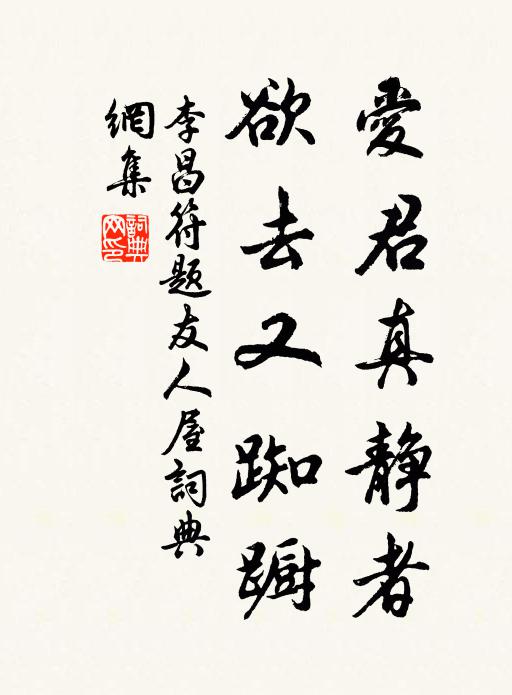 愛君真静者
欲去又踟蹰
李昌符题友人屋詞典
網集
詞典網印